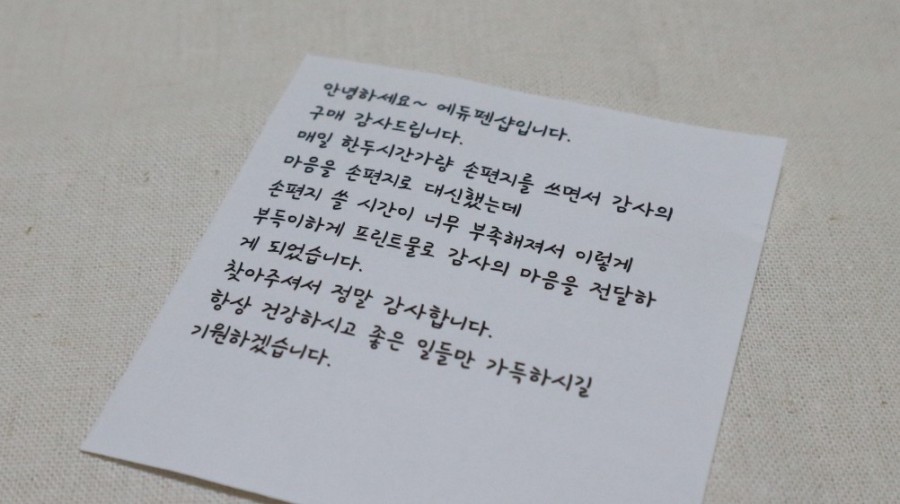 안녕하세요~ 에듀펜샵입니다.
구매 감사드립니다.
매일 한두시간가량 손편지를 쓰면서 감사의
마음을 손편지로 대신했는데
손편지 쓸 시간이 너무 부족해져서 이렇게
부득이하게 프린트물로 감사의 마음을 전달하
게 되었습니다.
찾아주셔서 정말 감사합니다.
항상 건강하시고 좋은 일들만 가득하시길
기원하겠습니다.